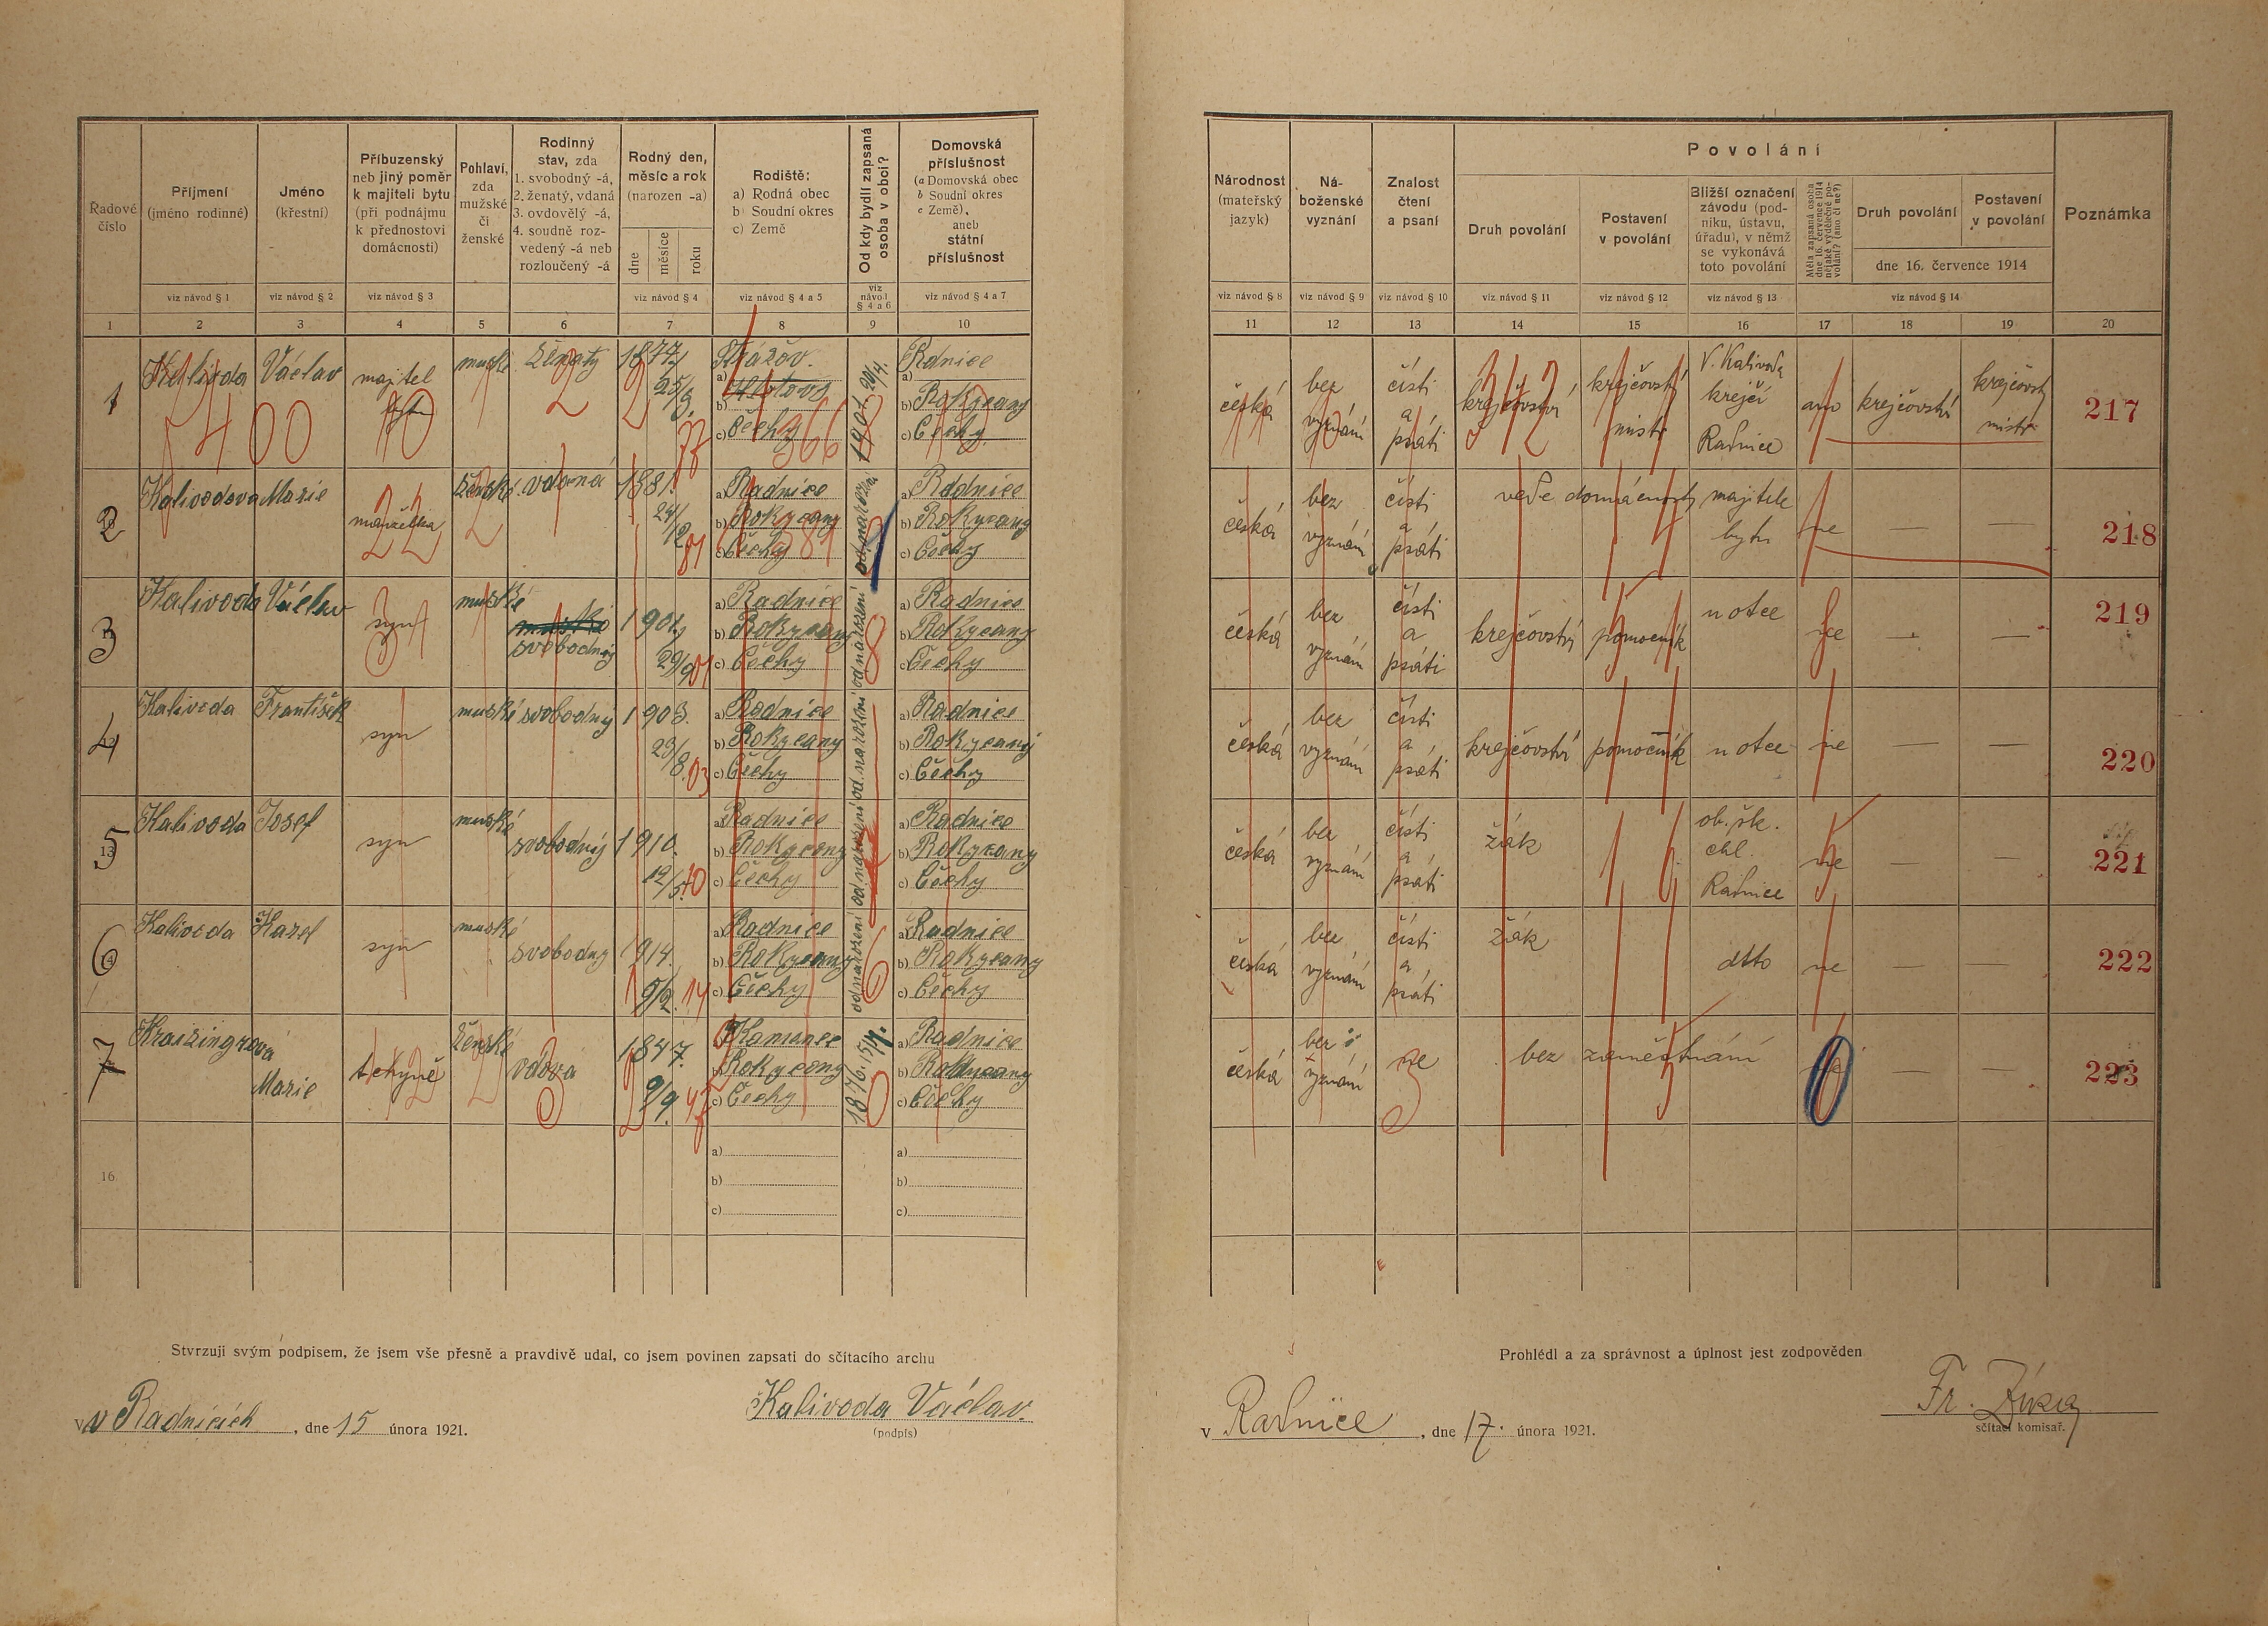 Řadové číslo
Příjmení (jméno rodinné)
viz návod § 1
Jméno (křestní)
viz návod § 2
Příbuzenský neb jiný poměr k majiteli bytu (při podnájmu k přednostovi domácnosti)
viz návod § 3
Pohlaví, zda mužské či ženské
Rodinný stav, zda 1. svobodný -á, 2. ženatý, vdaná 3. ovdovělý -á, 4. soudně rozvedený -á neb rozloučený -á
Rodný den, měsíc a rok (narozen -a)
dne měsíce roku
viz návod § 4
Rodiště:
a) Rodná obec
b) Soudní okres
c) Země
viz návod § 4 a 5
Od kdy bydlí zapsaná osoba v obci?
viz návod § 4 a 6
Domovská příslušnost
(a Domovská obec
b Soudní okres
c Země),
aneb
státní příslušnost
viz návod § 4 a 7
1 2 3 4 5 6 7 8 9 10
1 Kalivoda Václav majitel mužské ženatý 1877 25/9. 77
a) Strážov b) Klatovy c) Čechy
a) Radnice b) Rokycany c) Čechy
2 Kalivodova Marie manželka ženské vdaná 1881. 24/12 81
a) Radnice b) Rokycany c) Čechy
od narození
a) Radnice b) Rokycany c) Čechy
3 Kalivoda Václav syn mužské svobodný 1901. 29/9 01
a) Radnice b) Rokycany c) Čechy
od narození
a) Radnice b) Rokycany c) Čechy
4 Kalivoda František syn mužské svobodný 1903. 23/8. 03
a) Radnice b) Rokycany c) Čechy
od narození
a) Radnice b) Rokycany c) Čechy
5 Kalivoda Josef syn mužské svobodný 1910. 10
a) Radnice b) Rokycany c) Čechy
od narození
a) Radnice b) Rokycany c) Čechy
6 Kalivoda Karel syn mužské svobodný 1914. 5/2. 14
a) Radnice b) Rokycany c) Čechy
od narození
a) Radnice b) Rokycany c) Čechy
7 Kraizingrová Marie tchyně ženské vdova 1847. 9/9. 47
b) Rokycany c) Čechy
1876.
a) Radnice b) Rokycany c) Čechy
16
a) b) c)
a) b) c)
Stvrzuji svým podpisem, že jsem vše přesně a pravdivě udal, co jsem povinen zapsati do sčítacího archu
v v Radnicích, dne 15 února 1921.
Kalivoda Václav.
(podpis)
Národnost (mateřský jazyk)
viz návod § 8
Náboženské vyznání
viz návod § 9
Znalost čtení a psaní
viz návod § 10
Povolání
Druh povolání
viz návod § 11
Postavení v povolání
viz návod § 12
Bližší označení závodu (podniku, ústavu, úřadu), v němž se vykonává toto povolání
viz návod § 13
Měla zapsaná osoba dne 16. července 1914 nějaké výdělečné povolání? (ano či ne?)
Druh povolání
Postavení v povolání
dne 16. července 1914
viz návod § 14
Poznámka
11 12 13 14 15 16 17 18 19 20
česká bez vyznání čísti a psáti krejčovství krejčovský mistr V. Kalivoda krejčí Radnice ano krejčovství krejčovský mistr 217
česká bez vyznání čísti a psáti vede domácnost majitele bytu ne — — 218
česká bez vyznání čísti a psáti krejčovství pomocník u otce ne — — 219
česká bez vyznání čísti a psáti krejčovství pomocník u otce ne — — 220
česká bez vyznání čísti a psáti žák ob. šk. chl. Radnice ne — — 221
česká bez vyznání čísti a psáti žák dtto ne — — 222
česká bez vyznání ne bez zaměstnání ne — — 223
Prohlédl a za správnost a úplnost jest zodpověden
v Radnice, dne 17. února 1921.
Fr.
sčítací komisař.